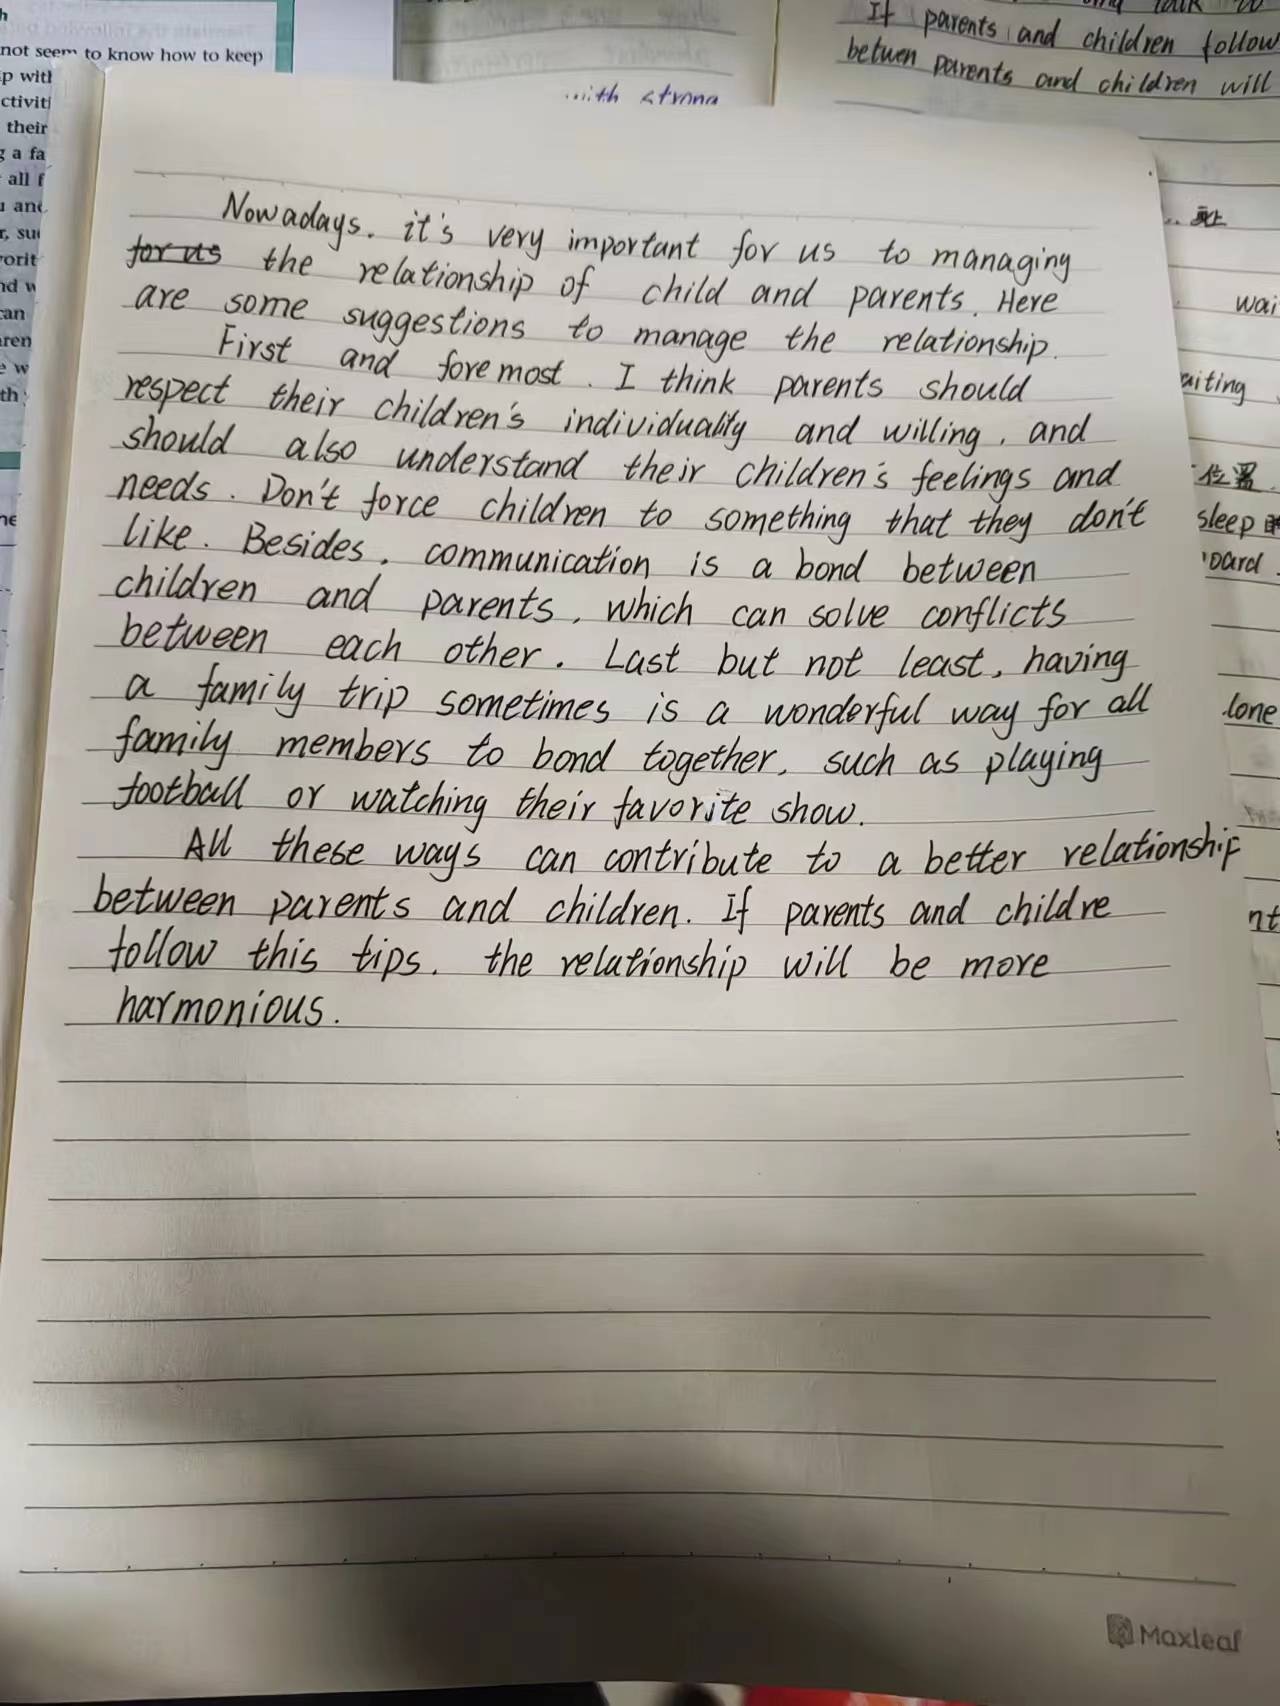 not seem to know how to keep
their
all
can
with strong
If parents and children follow
betwen parents and children will
Nowadays. it's very important for us to managing
for us the relationship of child and parents. Here
are some suggestions to manage the relationship.
First and foremost. I think parents should
respect their children's individuality and willing, and
should also understand their children's feelings and
needs. Don't force children to something that they don't
like. Besides, communication is a bond between
children and parents, which can solve conflicts
between each other. Last but not least, having
a family trip sometimes is a wonderful way for all
family members to bond together, such as playing
football or watching their favorite show.
All these ways can contribute to a better relationship
between parents and children. If parents and childre
follow this tips. the relationship will be more
harmonious.
wai
aiting
位置.
sleep
oard.
lone
nt
Maxleaf